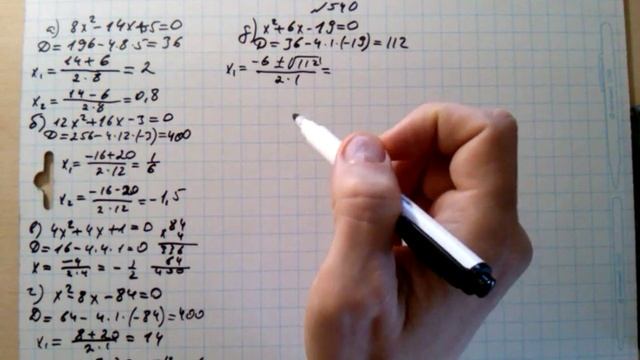 №540
а) 8x²-14x+5=0
D=196-4.8.5=36
x₁=(14+6)/(2.8)=2
x₂=(14-6)/(2.8)=0,8
б) 12x²+16x-3=0
D=256-4.12.(-3)=400
x₁=(-16+20)/(2.12)=1/6
x₂=(-16-20)/(2.12)=-1,5
в) 4x²+4x+1=0
D=16-4.4.1=0
x=(-4)/(2.4)=-1/2
84
x 4
336
64
400
г) x²-8x-84=0
D=64-4.1.(-84)=400
x₁=(8+20)/(2.1)=14
д) x²+6x-19=0
D=36-4.1.(-19)=112
x₁=(-6±√112)/(2.1)=